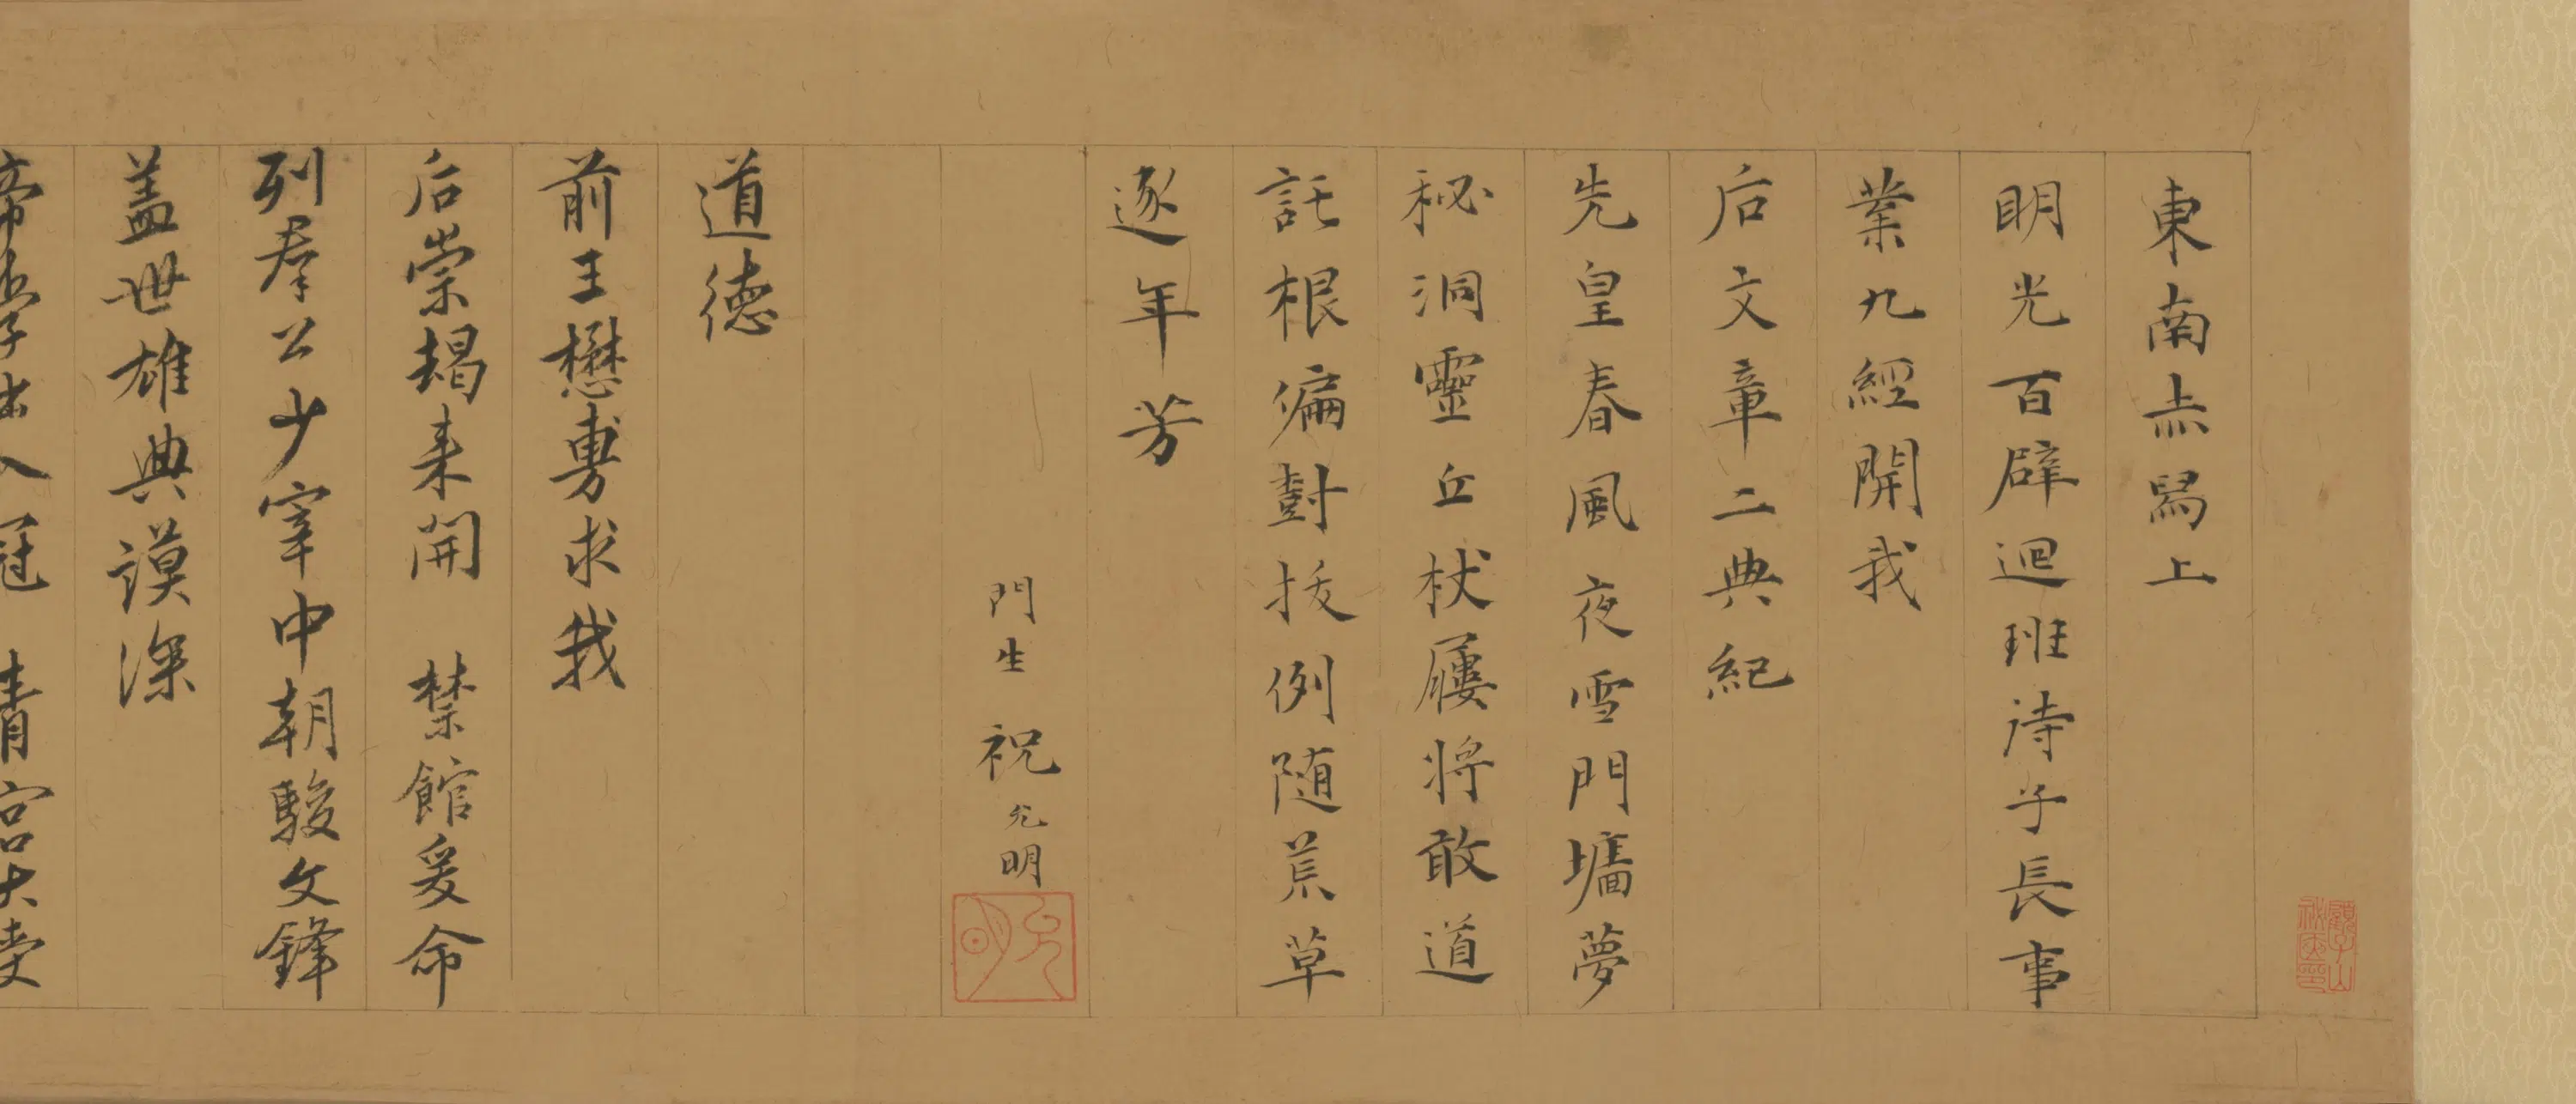 東南赤舄上
明光百辟迴班待子長事
業九經開我
后文章二典紀
先皇春風夜雪門墻夢
秘洞靈丘杖屨將敢道
託根偏對拔例随荒草
逐年芳
門生祝允明
允明
道德
前王懋旉求我
后崇朅来開 禁館爰命
列羣公少宰中朝駿文鋒
盖世雄典謨深
帝學出入冠 青宮大